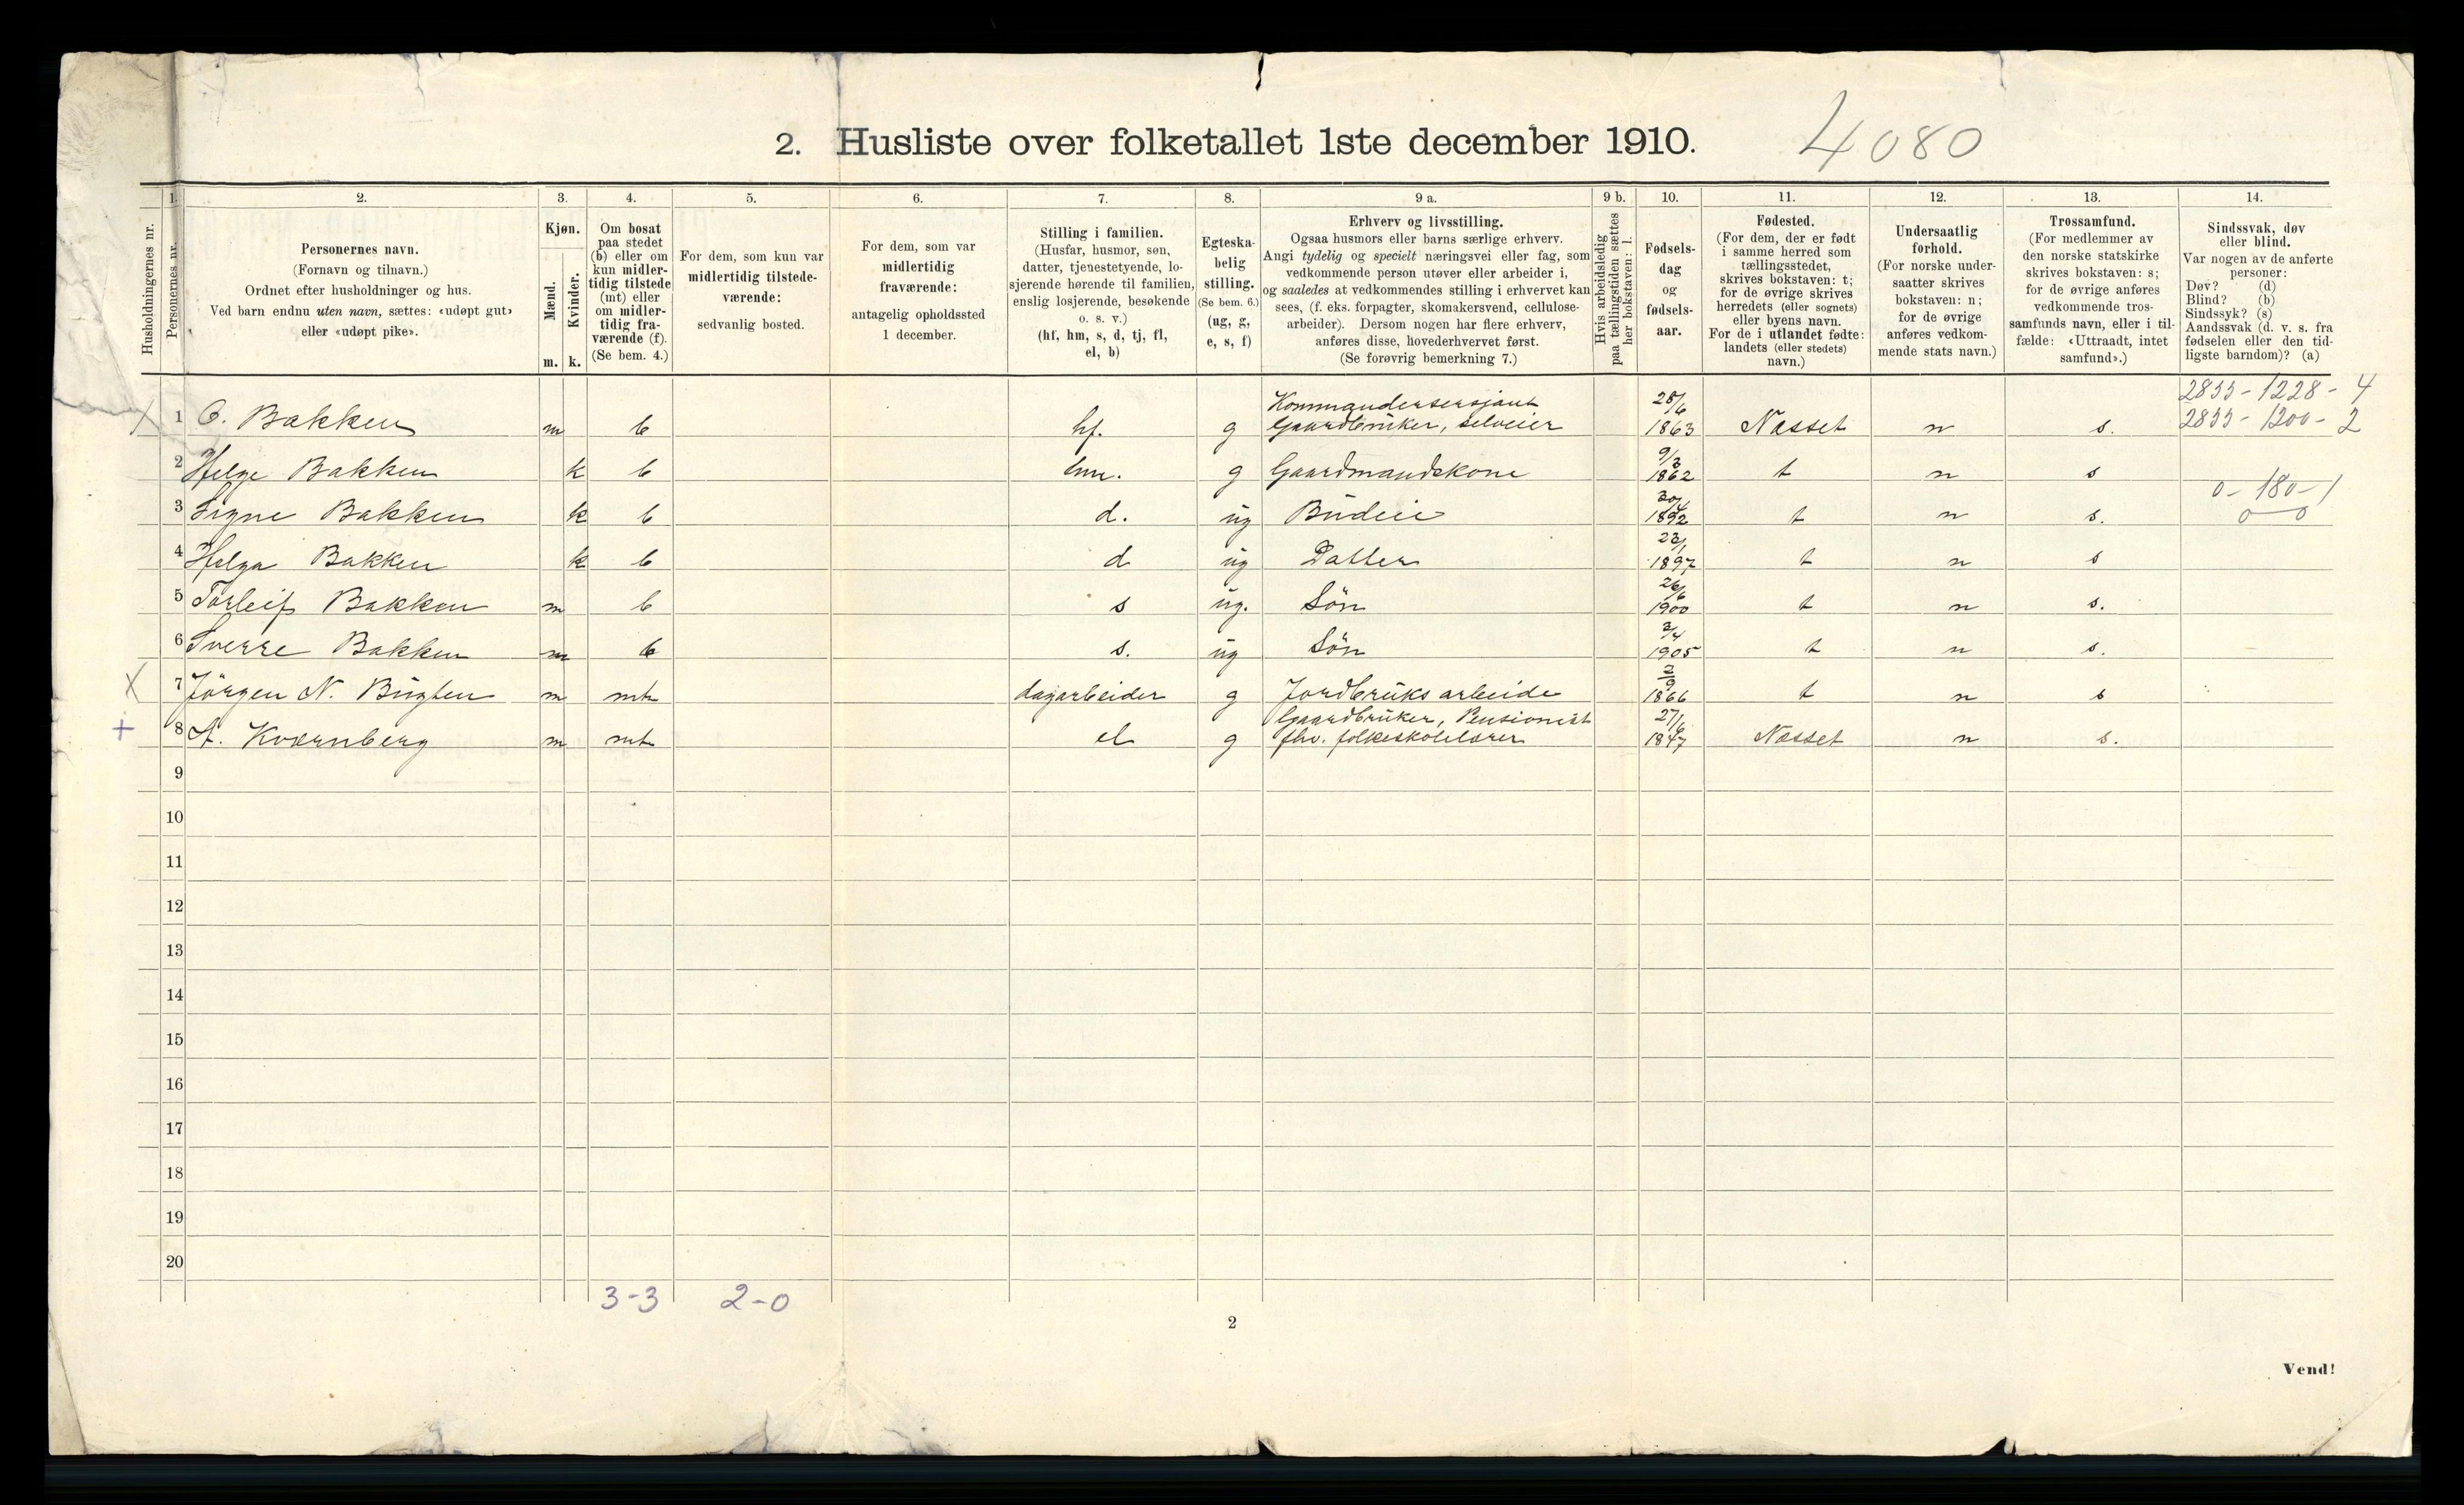 2. Husliste over folketallet 1ste december 1910. 4080
1. 2. 3. 4. 5. 6. 7. 8. 9 a. 9 b. 10. 11. 12. 13. 14.
Husholdningernes nr.
Personernes nr.
Personernes navn.
(Fornavn og tilnavn.)
Ordnet efter husholdninger og hus.
Ved barn endnu uten navn, sættes: «udøpt gut»
eller «udøpt pike».
Kjøn.
Mænd.
Kvinder.
m. k.
Om bosat
paa stedet
(b) eller om
kun midler-
tidig tilstede
(mt) eller
om midler-
tidig fra-
værende (f).
(Se bem. 4.)
For dem, som kun var
midlertidig tilstede-
værende:
sedvanlig bosted.
For dem, som var
midlertidig
fraværende:
antagelig opholdssted
1 december.
Stilling i familien.
(Husfar, husmor, søn,
datter, tjenestetyende, lo-
sjerende hørende til familien,
enslig losjerende, besøkende
o. s. v.)
(hf, hm, s, d, tj, fl,
el, b)
Egteska-
belig
stilling.
(Se bem. 6.)
(ug, g,
e, s, f)
Erhverv og livsstilling.
Ogsaa husmors eller barns særlige erhverv.
Angi tydelig og specielt næringsvei eller fag, som
vedkommende person utøver eller arbeider i,
og saaledes at vedkommendes stilling i erhvervet kan
sees, (f. eks. forpagter, skomakersvend, cellulose-
arbeider). Dersom nogen har flere erhverv,
anføres disse, hovederhvervet først.
(Se forøvrig bemerkning 7.)
Hvis arbeidsledig
paa tællingstiden sættes
her bokstaven: l.
Fødsels-
dag
og
fødsels-
aar.
Fødested.
(For dem, der er født
i samme herred som
tællingsstedet,
skrives bokstaven: t;
for de øvrige skrives
herredets (eller sognets)
eller byens navn.
For de i utlandet fødte:
landets (eller stedets)
navn.)
Undersaatlig
forhold.
(For norske under-
saatter skrives
bokstaven: n;
for de øvrige
anføres vedkom-
mende stats navn.)
Trossamfund.
(For medlemmer av
den norske statskirke
skrives bokstaven: s;
for de øvrige anføres
vedkommende tros-
samfunds navn, eller i til-
fælde: «Uttraadt, intet
samfund».)
Sindssvak, døv
eller blind.
Var nogen av de anførte
personer:
Døv? (d)
Blind? (b)
Sindssyk? (s)
Aandssvak (d. v. s. fra
fødselen eller den tid-
ligste barndom)? (a)
Kommandersersjant 28/6 2855-1228-4
X 1 O. Bakken m b hf. g Gaardbruker, selveier 1863 Næsset n s. 2855-1200-2
2 Helge Bakken k b hm. g Gaardmandskone 9/3 1862 t n s
0-180-1
3 Signe Bakken k b d. ug Budeie 30/4 1892 t n s. 0-0
4 Helga Bakken k b d ug Datter 23/1 1897 t n s
5 Torleif Bakken m b s ug. Søn 26/6 1900 t n s.
6 Sverre Bakken m b s. ug Søn 3/4 1905 t n s.
X 7 Jörgen N. Bugten m mt dagarbeider g Jordbruks arbeide 2/9 1866 t n s
Gaardbruker, Pensionist 27/6
+ 8 A. Kværnberg m mt el g fhv. folkeskolelærer 1847 Næsset n s.
9
10
11
12
13
14
15
16
17
18
19
20
3-3 2-0
2
Vend!